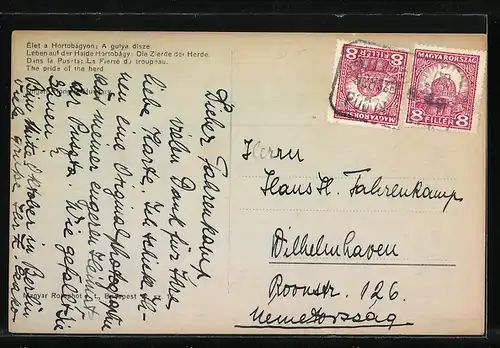 Élet a Hortobágyon: A gulya disze
Leben auf der Haide Hortobágy: Die Zierde der Herde.
Dans la Puszta: La Fierté du troupeau.
The pride of the herd
MAGYARORSZÁG
8 FILLÉR 8
MAGYARORSZÁG
8 FILLÉR 8
Lieber Fahrenkamp
vielen Dank für Ihre
liebe Karte. Ich schicke Ih-
nen eine Originalphotographie
aus meiner engeren Heimat
der Puszta. Wie gefällt die
Ihnen?
Oktober in Berlin
Herrn
Hans H. Fahrenkamp
Wilhelmhaven
Roonstr. 126.
Németország
Magyar Rotophot Budapest